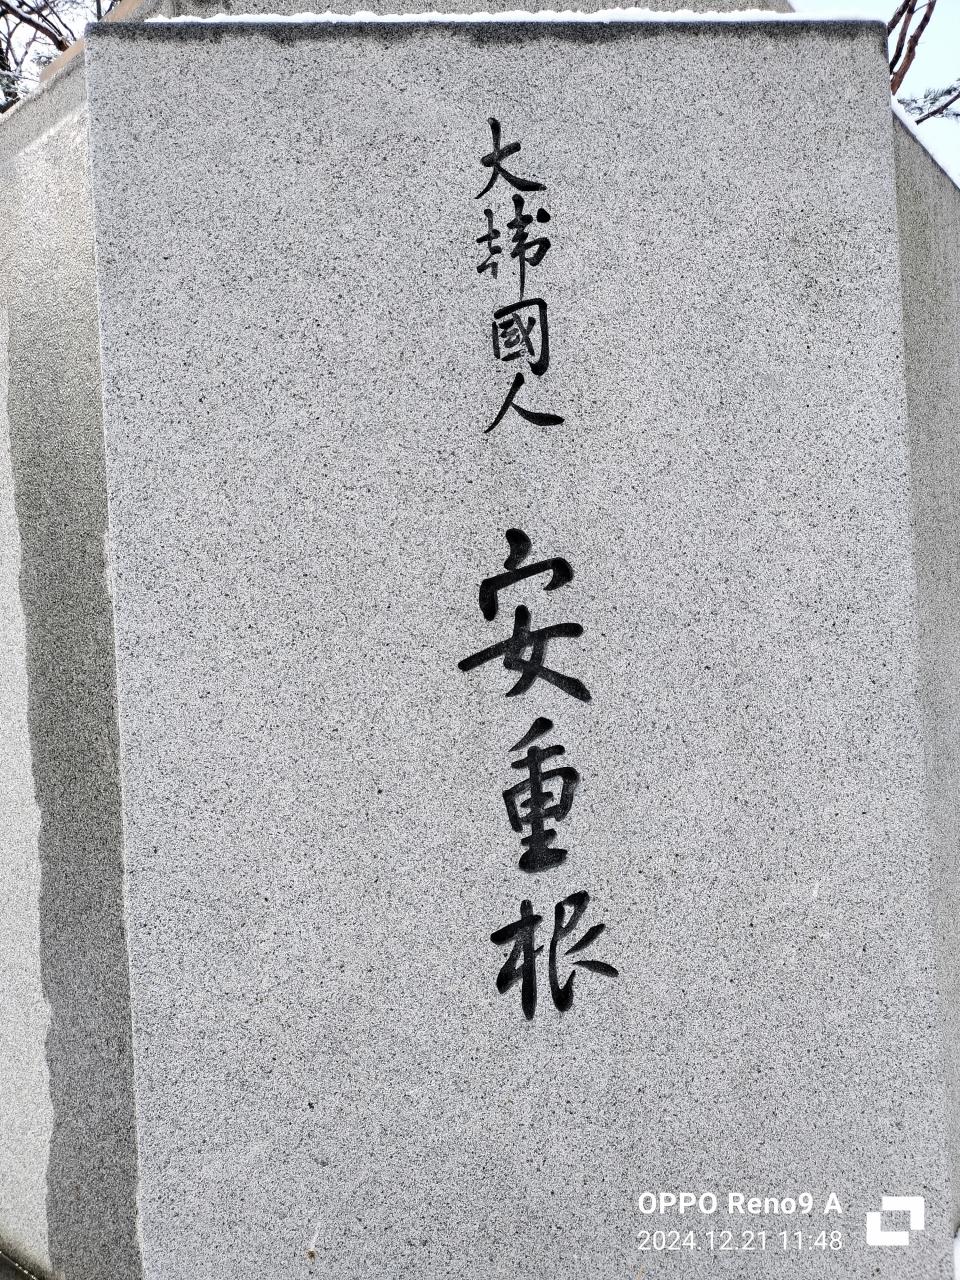 大韓國人
安重根
OPPO Reno9 A
2024.12.21 11:48